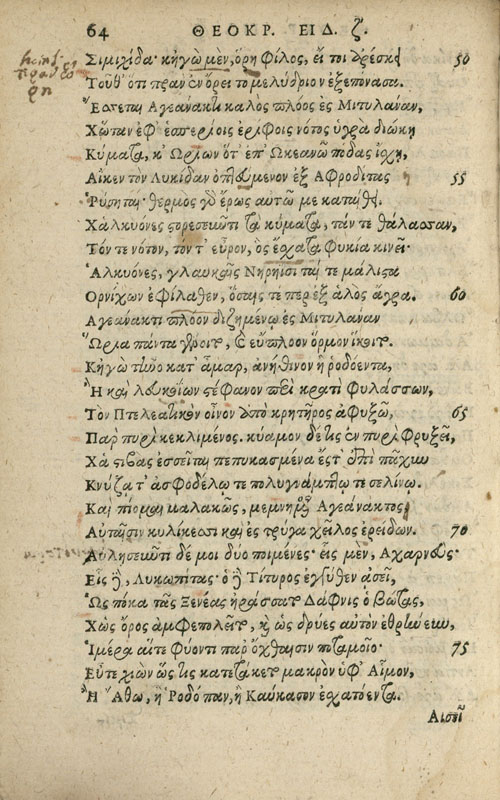 64 ΘΕΟΚΡ. ΕΙΔ. ζ.
Σιμιχίδα· κἠγὼ μὲν, ὅρη φίλος, εἴ τοι ἀρέσκει 50
Τοῦθ' ὅτι πρᾶν ἐν ὄρει τὸ μελύδριον ἐξεπόνασα.
Ἔσσεται Ἀγεάνακτι καλὸς πλόος ἐς Μιτυλάναν,
Χὤταν ἐφ' ἑσπερίοις ἐρίφοις νότος ὑγρὰ διώκῃ
Κύματα, κ' Ὠρίων ὅτ' ἐπ' Ὠκεανῷ πόδας ἴσχῃ,
Αἴκεν τὸν Λυκίδαν ὀπλεύμενον ἐξ Ἀφροδίτας 55
Ῥύσηται· θερμὸς γὰρ ἔρως αὐτῶ με καταίθει.
Χἀλκυόνες στορεσεῦντι τὰ κύματα, τάν τε θάλασσαν,
Τόν τε νότον, τόν τ' εὖρον, ὃς ἔσχατα φυκία κινεῖ·
Ἀλκυόνες, γλαυκαῖς Νηρηίσι ταί τε μάλιστα
Ὀρνίχων ἐφίλαθεν, ὅσαις τε περ ἐξ ἁλὸς ἄγρα. 60
Ἀγεάνακτι πλόον διζημένῳ ἐς Μιτυλάναν
Ὥρια πάντα γένοιτο, καὶ εὔπλοον ὅρμον ἵκοιτο.
Κἠγὼ τῆνο κατ' ἆμαρ, ἀνήθινον ἢ ῥοδόεντα,
Ἢ καὶ λευκοΐων στέφανον περὶ κρατὶ φυλάσσων,
Τὸν Πτελεατικὸν οἶνον ἀπὸ κρητῆρος ἀφυξῶ, 65
Πὰρ πυρὶ κεκλιμένος. κύαμον δέ τις ἐν πυρὶ φρυξεῖ,
Χἀ στιβὰς ἐσσεῖται πεπυκασμένα ἔστ' ἐπὶ πᾶχυν
Κνύζᾳ τ' ἀσφοδέλῳ τε πολυγνάμπτῳ τε σελίνῳ.
Καὶ πίομαι μαλακῶς, μεμνημένος Ἀγεάνακτος,
Αὐταῖσιν κυλίκεσσι καὶ ἐς τρύγα χεῖλος ἐρείδων. 70
Αὐλησεῦντι δέ μοι δύο ποιμένες· εἷς μὲν, Ἀχαρνεύς·
Εἷς δὲ, Λυκωπίτας· ὁ δὲ Τίτυρος ἐγγύθεν ἀσεῖ,
Ὥς ποκα τᾶς Ξενέας ἠράσσατο Δάφνις ὁ βώτας,
Χὡς ὄρος ἀμφεπολεῖτο, καὶ ὡς δρύες αὐτὸν ἐθρήνευν,
Ἱμέρα αἵτε φύοντι παρ' ὄχθαισιν ποταμοῖο·  75
Εὖτε χιὼν ὥς τις κατετάκετο μακρὸν ὑφ' Αἷμον,
Ἢ Ἄθω, ἢ Ῥοδόπαν, ἢ Καύκασον ἐσχατόεντα.
Αἰσεῖ